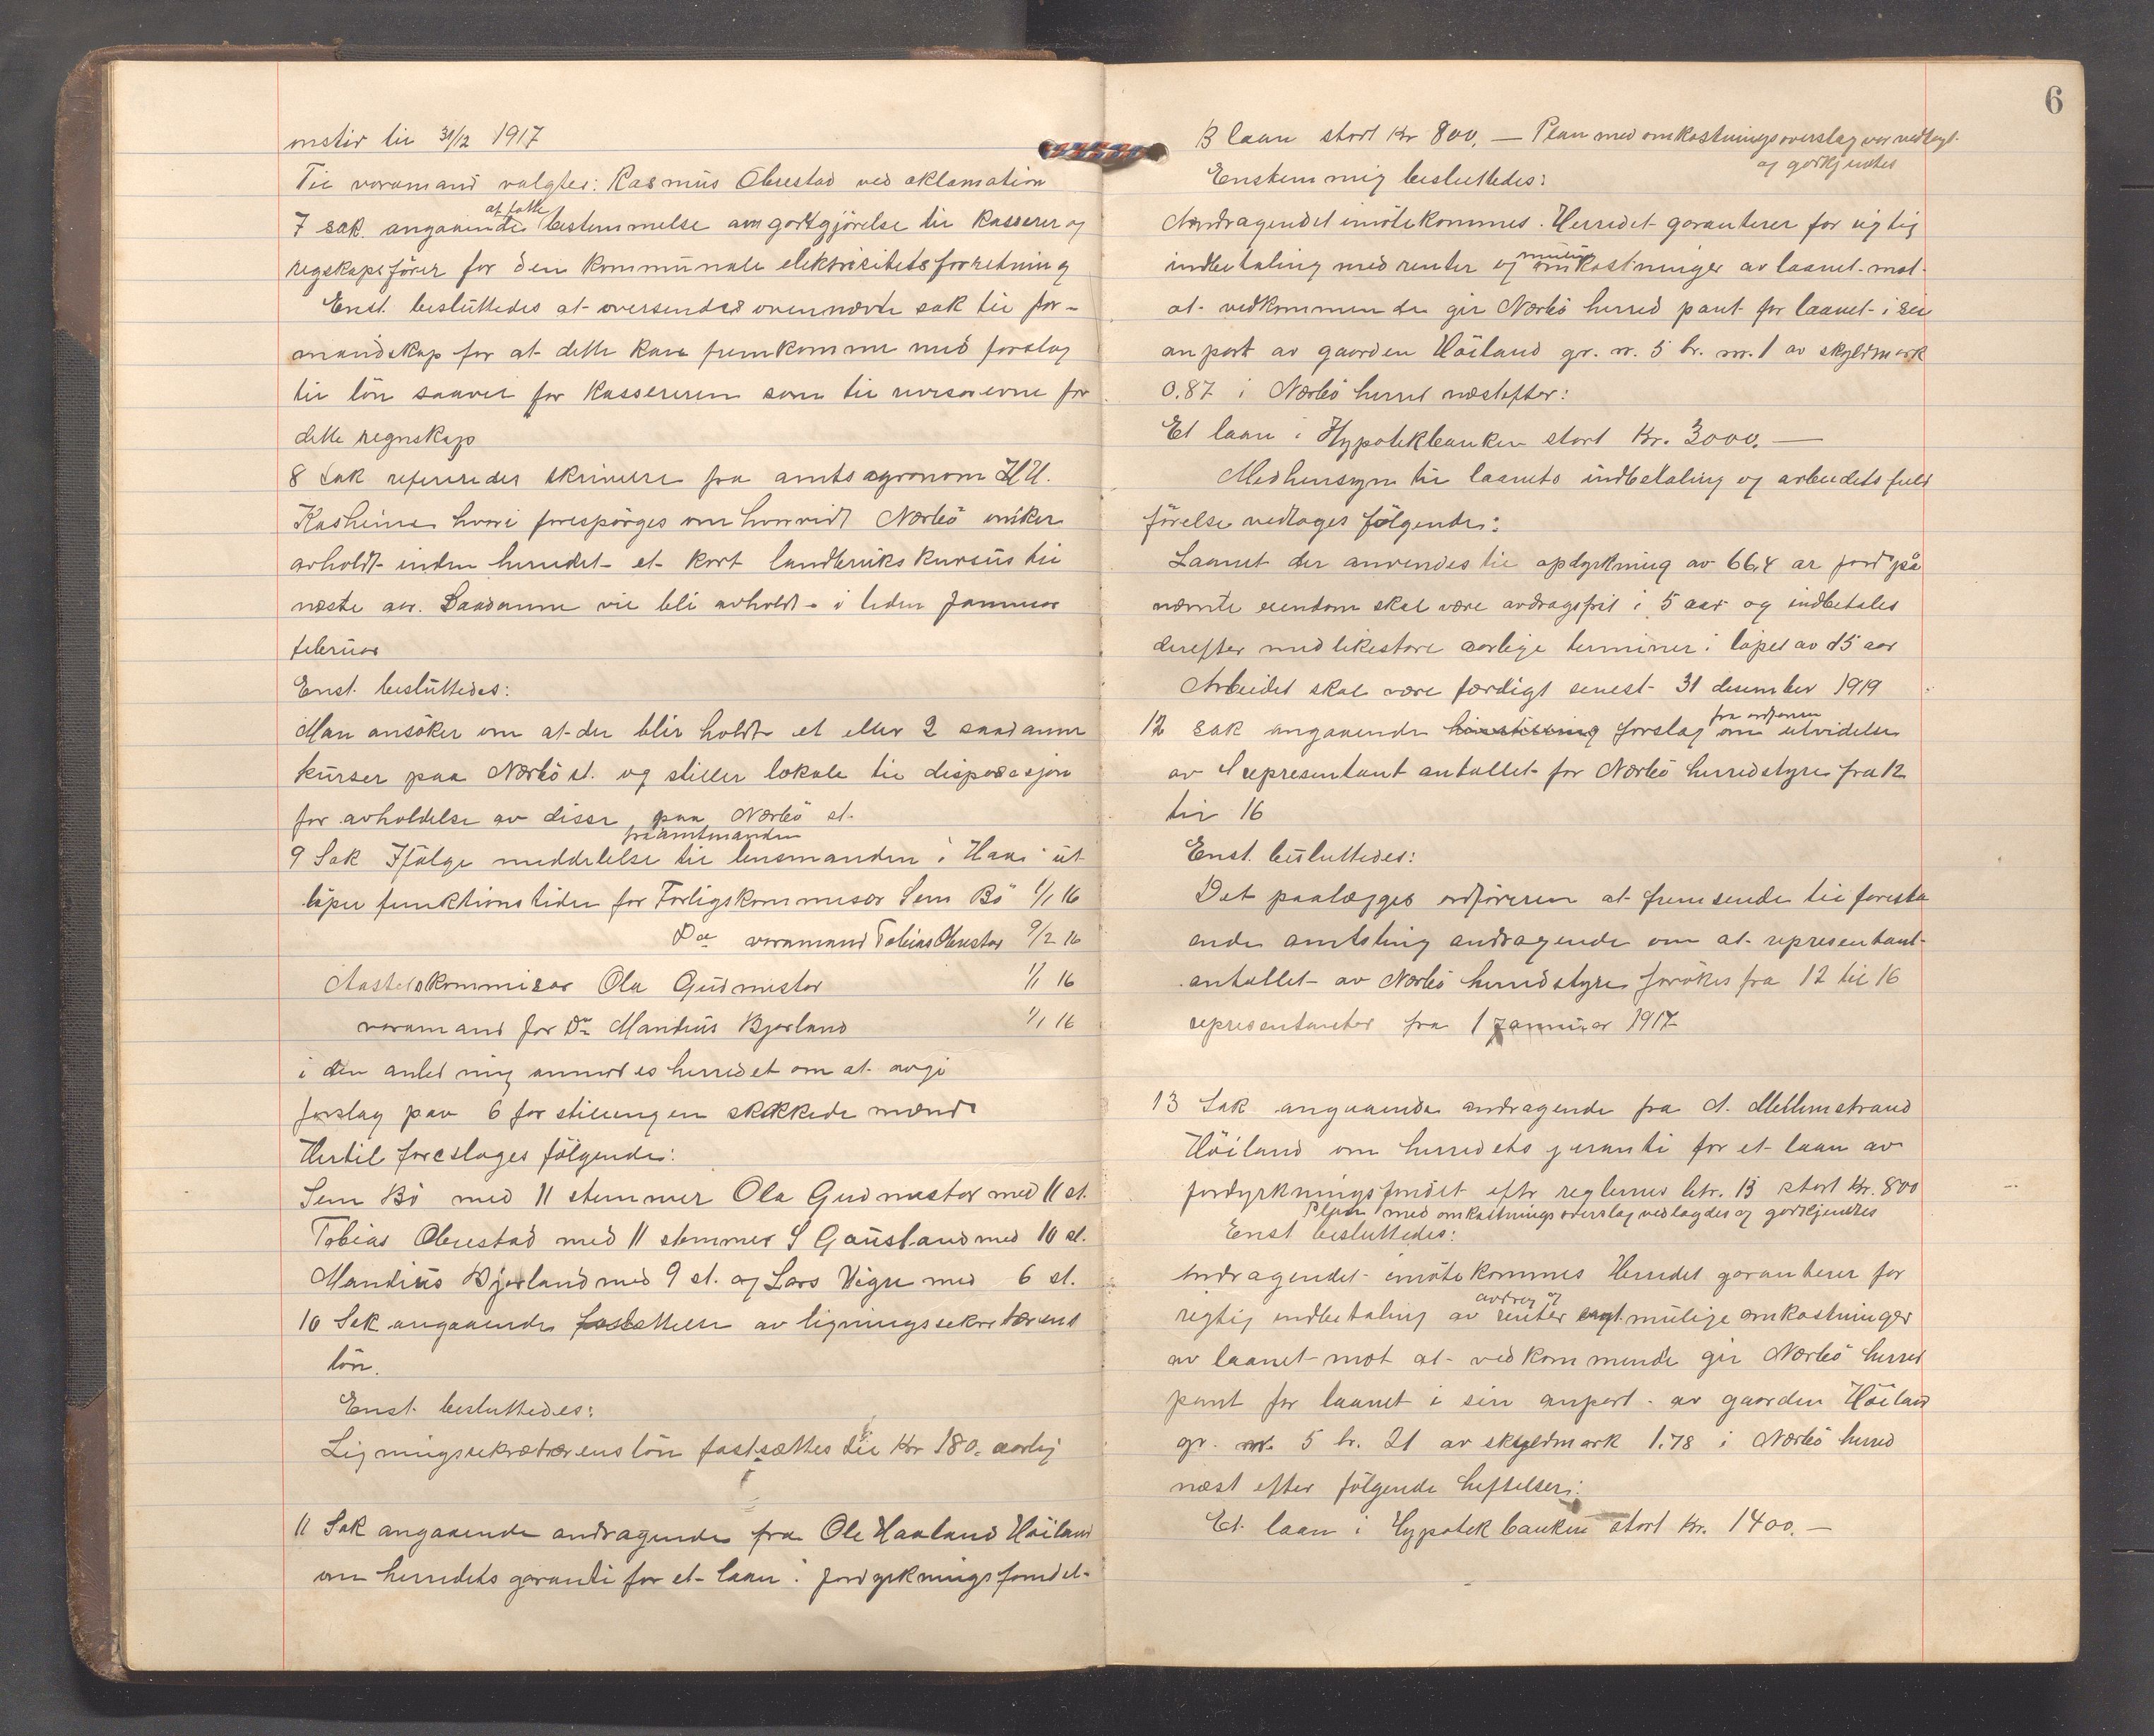 mstir til 31/12 1917
Til varamand valgtes: Rasmus Obrestad ved aklamation
7 sak. angaaende at fatte bestemmelse om godtgjörelse til kasserer og
regskapsförer for den kommunale elektricitetsforretning
Enst. besluttedes at oversendes ovennævte sak til for-
mandskap for at dette kan fremkomme med forslag
til lön saavel for kassereren som til revisorerne for
dette regnskap
8 Sak refereredes skrivelse fra amtsagronom
hvori forespörges om hvorvidt Nærbö önsker
avholdt inden herredet et kort landbrukskursus til
næste aar. Saadanne vil bli avholdt i tiden Januar
februar
Enst. besluttedes:
Man ansöker om at der blir holdt et eller 2 saadanne
kurser paa Nærbö st. og stiller lokale til disposisjon
for avholdelse av disse paa Nærbö st.
9 Sak Ifölge meddelelse fra amtmanden til lensmanden i Haa ut
löper funktionstiden for Forligskommisær Sem Bö 1/1 16
Do varamand Tobias Obrestad 9/2 16
Aastedskommisær Ola Gudmestad 1/1 16
varamand for Do Mandius Bjorland 1/1 16
i den anledning anmodes herredet om at avgi
forslag paa 6 for stillingen skikkede mænd
Hertil foreslages fölgende:
Sem Bö med 11 stemmer Ola Gudmestad med 11 st.
Tobias Obrestad med 11 stemmer S Gausland med 10 st.
Mandius Bjorland med 9 st. og Lars Vigre med 6 st.
10 Sak angaaende fastsettelse av ligningssekretærens
lön.
Enst. besluttedes:
Ligningsekretærens lön fastsættes til Kr 180. aarlig
11 Sak angaaende andragende fra Ole Haaland Höiland
om herredets garanti for et laan i jordyrkningsfondet
6
B laan stort Kr 800. — Plan med omkostningsoverslag var vedlagt
og godkjendtes
Enstemmig besluttedes:
Andragendet imötekommes. Herredet garanterer for rigtig
indbetaling med renter og mulige omkostninger av laanet mot
at vedkommende gir Nærbö herred pant for laanet i sin
anpart av gaarden Höiland gr. nr. 5 br. nr. 1 av skyldmark
0.87 i Nærbö herred næstefter:
Et laan i Hypotekbanken stort Kr. 3000. —
Medhensyn til laanets indbetaling og arbeidets fuld
förelse vedtages fölgende:
Laanet der anvendes til opdyrkning av 66,4 ar jord på
nævnte eiendom skal være avdragsfrit i 5 aar og indbetales
derefter med likestore aarlige terminer i löpet av 15 aar
Arbeidet skal være færdigt senest 31 desember 1919
12 Sak angaaende forslag fra ordföreren om utvidelse
av representant antallet for Nærbö herredstyre fra 12
til 16
Enst. besluttedes:
Det paalægges ordföreren at fremsende til foresta
ende amtsting andragende om at representant-
antallet av Nærbö herredstyre forökes fra 12 til 16
representanter fra 1 Januar 1917
13 Sak angaaende andragende fra A. Mellemstrand
Höiland om herredets garanti for et laan av
jordyrkningsfondet eftr reglernes litr. B stort Kr. 800
Plan med omkostningsoverslag vedlagdes og godkjendtes
Enst besluttedes:
Andragendet imötekommes Herredet garanterer for
rigtig indbetaling av avdrag og renter samt mulige omkostninger
av laanet mot at vedkommende gir Nærbö herred
pant for laanet i sin anpart av gaarden Höiland
gr. nr. 5 br. 21 av skyldmark 1.78 i Nærbö herred
næst efter fölgende heftelser:
Et laan i Hypotekbanken stort Kr. 1400. —